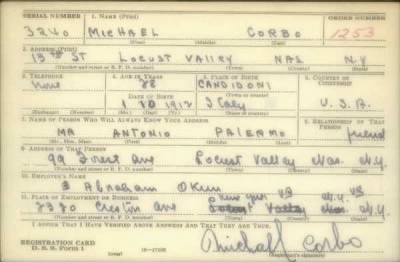 SERIAL NUMBER 1. NAME (Print) ORDER NUMBER
3240 MICHAEL CORBO 1253
(First) (Middle) (Last)
2. ADDRESS (Print)
13TH ST LOCUST VALLEY NAS. N.Y
(Number and street or R. F. D. number) (Town) (County) (State)
3. TELEPHONE 4. AGE IN YEARS 5. PLACE OF BIRTH 6. COUNTRY OF CITIZENSHIP
none 28 CANDIDONI
DATE OF BIRTH
1 10 1912 Italy U.S.A.
(Exchange) (Number) (Mo.) (Day) (Yr.) (State or country)
7. NAME OF PERSON WHO WILL ALWAYS KNOW YOUR ADDRESS 8. RELATIONSHIP OF THAT PERSON
MR ANTONIO PALERMO friend
(Mr., Mrs., Miss) (First) (Middle) (Last)
9. ADDRESS OF THAT PERSON
99 Forest Ave Locust Valley Nas. N.Y.
(Number and street or R. F. D. number) (Town) (County) (State)
10. EMPLOYER'S NAME
Abraham Okun
11. PLACE OF EMPLOYMENT OR BUSINESS New York N.Y.
Creston Ave Locust Valley Nas N.Y.
(Number and street or R. F. D. number) (Town) (County) (State)
I AFFIRM THAT I HAVE VERIFIED ABOVE ANSWERS AND THAT THEY ARE TRUE.
REGISTRATION CARD
D. S. S. Form 1 (over) 16—17105 Michael Corbo
(Registrant's signature)